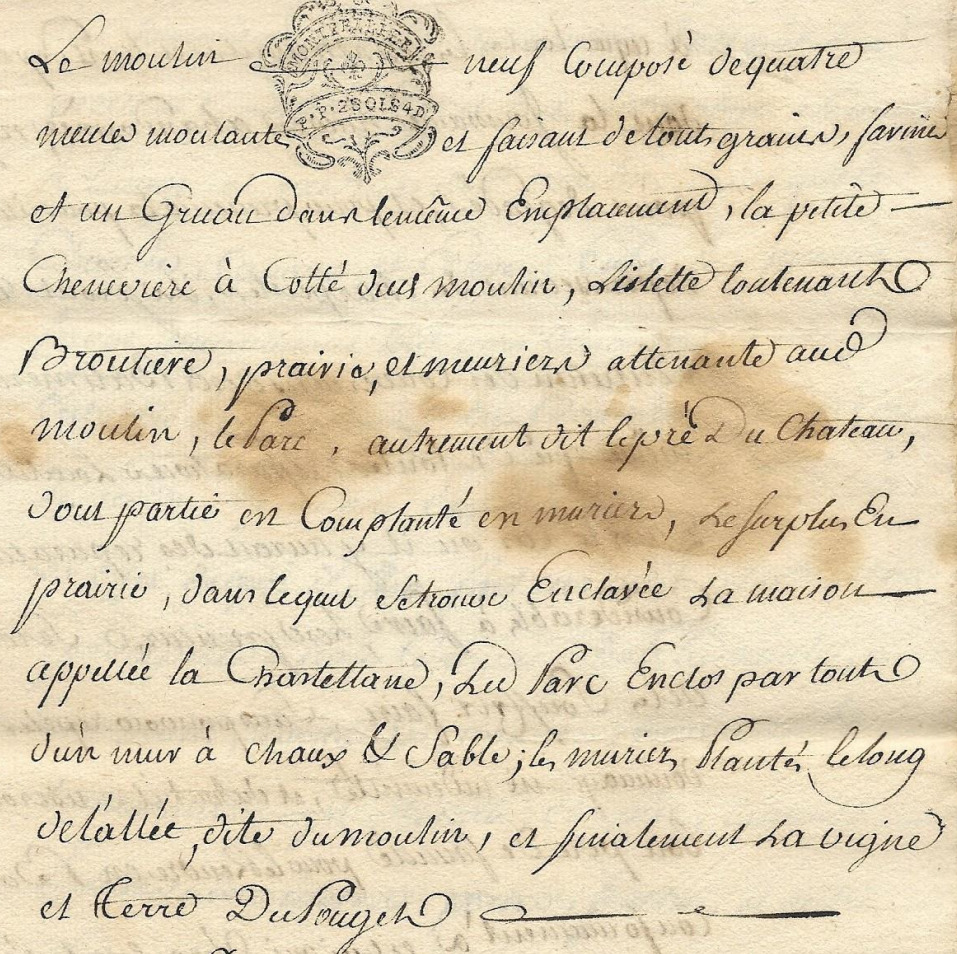 MONTPELLIER
P.P. 2 SOLS 4 D
Le moulin neuf Composé de quatre
meules moulante et faisant de touts grains, farine
et un Gruau dans le même Emplacement, la petite
Cheneviere à Cotté dud moulin, Lislette Contenant
Broutiere, prairie, et meuriers attenante aud
moulin, le Parc, autrement dit le pré Du Chateau,
dont partie en Complanté en muriers, Le surplus En
prairie, dans lequel se trouve Enclavée La maison
appellée la Chastellane, Led Parc Enclos par tout
d'un mur à chaux & Sable; les muriers Plantés le long
de l'allée, dite du moulin, et finalement La vigne
et Terre Du Pouget